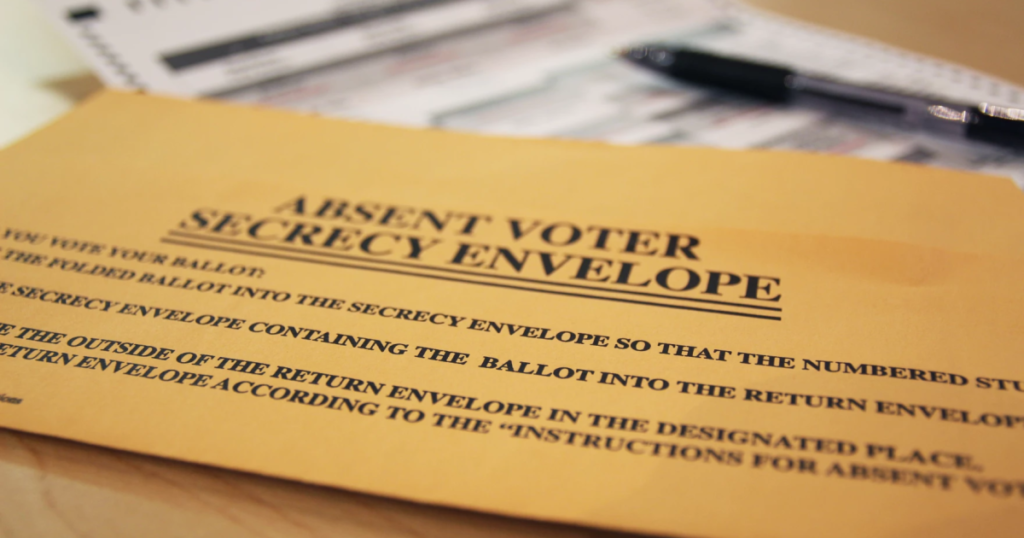 ABSENT VOTER
SECRECY ENVELOPE
YOU VOTE YOUR BALLOT:
THE FOLDED BALLOT INTO THE SECRECY ENVELOPE SO THAT THE NUMBERED STU
E SECRECY ENVELOPE CONTAINING THE BALLOT INTO THE RETURN ENVELOP
E THE OUTSIDE OF THE RETURN ENVELOPE IN THE DESIGNATED PLACE.
RETURN ENVELOPE ACCORDING TO THE “INSTRUCTIONS FOR ABSENT VOT